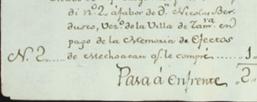 di nº 2. afabor de dn Nicolas Ber
duzco, Vecº de la Villa de Tamra en
pago de la Memoria de Efectos
Nº. 2 de Mechoacan qe. le compré 1
Pasa á Enfrente 2